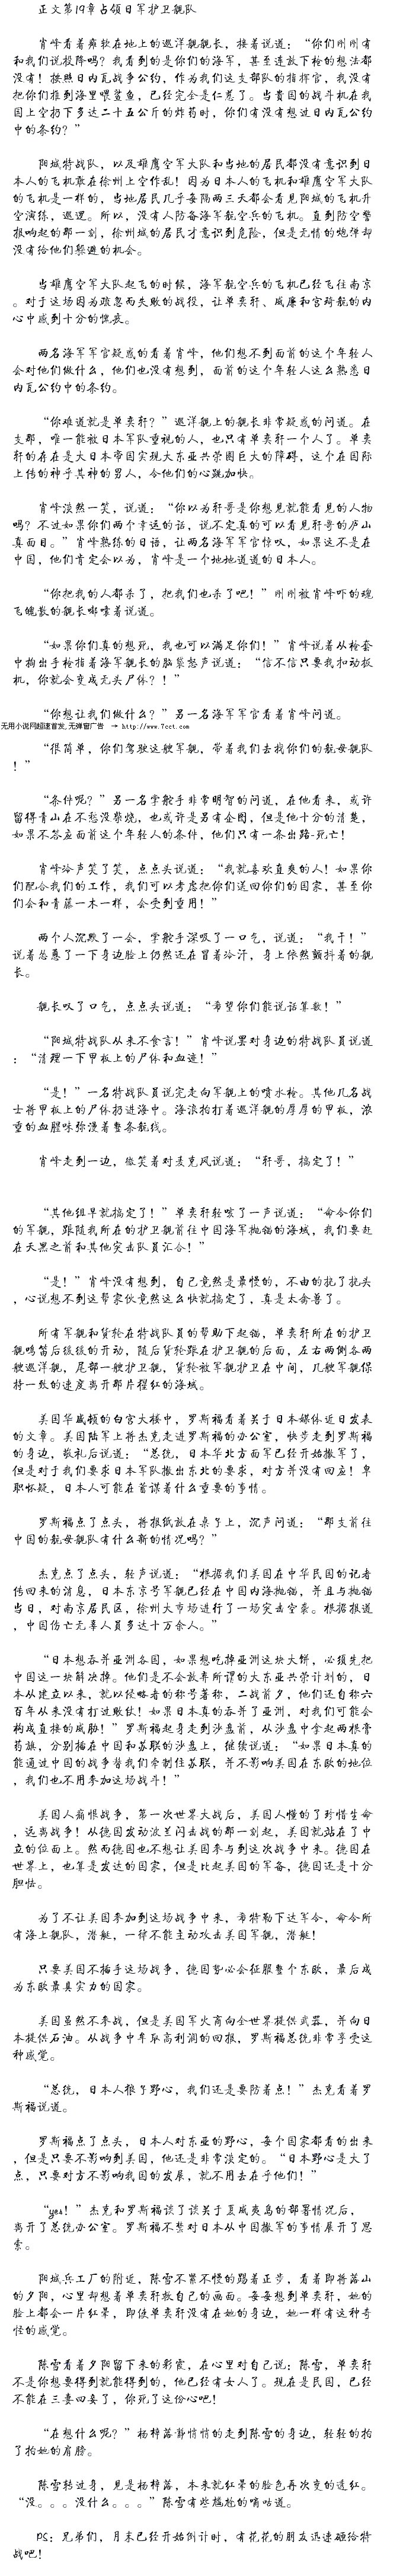 正文第19章占领日军护卫舰队
肖峰看着瘫软在地上的巡洋舰舰长，接着说道：“你们刚刚有
和我们说投降吗？我看到的是你们的海军，甚至连放下枪的想法都
没有！按照日内瓦战争公约，作为我们这支部队的指挥官，我没有
把你们推到海里喂鲨鱼，已经完全是仁慈了。当贵国的战斗机在我
国上空扔下多达二十五公斤的炸药时，你们有没有想过日内瓦公约
中的条约？”
阳城特战队，以及雄鹰空军大队和当地的居民都没有意识到日
本人的飞机敢在徐州上空作乱！因为日本人的飞机和雄鹰空军大队
的飞机是一样的，当地居民几乎每隔两三天都会看见阳城的飞机升
空演练，巡逻。所以，没有人防备海军航空兵的飞机。直到防空警
报响起的那一刻，徐州城的居民才意识到危险，但是无情的炮弹却
没有给他们躲避的机会。
当雄鹰空军大队起飞的时候，海军航空兵的飞机已经飞往南京
。对于这场因为疏忽而失败的战役，让单奕轩、威廉和宫琦航的内
心中感到十分的愧疚。
两名海军军官疑惑的看着肖峰，他们想不到面前的这个年轻人
会对他们做什么，他们也没有想到，面前的这个年轻人这么熟悉日
内瓦公约中的条约。
“你难道就是单奕轩？”巡洋舰上的舰长非常疑惑的问道。在
支那，唯一能被日本军队重视的人，也只有单奕轩一个人了。单奕
轩的存在是大日本帝国实现大东亚共荣图巨大的障碍，这个在国际
上传的神乎其神的男人，令他们的心跳加快。
肖峰淡然一笑，说道：“你以为轩哥是你想见就能看见的人物
吗？不过如果你们两个幸运的话，说不定真的可以看见轩哥的庐山
真面目。”肖峰熟练的日语，让两名海军军官惊叹，如果这不是在
中国，他们肯定会以为，肖峰是一个地地道道的日本人。
“你把我的人都杀了，把我们也杀了吧！”刚刚被肖峰吓的魂
飞魄散的舰长哆嗦着说道。
“如果你们真的想死，我也可以满足你们！”肖峰说着从枪套
中掏出手枪指着海军舰长的脑袋怒声说道：“信不信只要我扣动扳
机，你就会变成无头尸体？！”
“你想让我们做什么？”另一名海军军官看着肖峰问道。
无用小说网超速首发,无弹窗广告 → http://www.7cct.com
“很简单，你们驾驶这艘军舰，带着我们去找你们的航母舰队
！”
“条件呢？”另一名掌舵手非常明智的问道，在他看来，或许
留得青山在不愁没柴烧，也或许是另有企图，但是他十分的清楚，
如果不答应面前这个年轻人的条件，他们只有一条出路-死亡！
肖峰冷声笑了笑，点点头说道：“我就喜欢直爽的人！如果你
们配合我们的工作，我们可以考虑把你们送回你们的国家，甚至你
们会和青藤一木一样，会受到重用！”
两个人沉默了一会，掌舵手深吸了一口气，说道：“我干！”
说着怂恿了一下身边脸上仍然还在冒着冷汗，身上依然颤抖着的舰
长。
舰长叹了口气，点点头说道：“希望你们能说话算数！”
“阳城特战队从来不食言！”肖峰说罢对身边的特战队员说道
：“清理一下甲板上的尸体和血迹！”
“是！”一名特战队员说完走向军舰上的喷水枪。其他几名战
士将甲板上的尸体扔进海中。海浪拍打着巡洋舰的厚厚的甲板，浓
重的血腥味弥漫着整条航线。
肖峰走到一边，微笑着对麦克风说道：“轩哥，搞定了！”
“其他组早就搞定了！”单奕轩轻咳了一声说道：“命令你们
的军舰，跟随我所在的护卫舰前往中国海军抛锚的海域，我们要赶
在天黑之前和其他突击队员汇合！”
“是！”肖峰没有想到，自己竟然是最慢的，不由的挠了挠头
，心说想不到这帮家伙竟然这么快就搞定了，真是太禽兽了。
所有军舰和货轮在特战队员的帮助下起锚，单奕轩所在的护卫
舰鸣笛后缓缓的开动，随后货轮跟在护卫舰的后面，左右两侧各两
艘巡洋舰，尾部一艘护卫舰，货轮被军舰护卫在中间，几艘军舰保
持一致的速度离开那片猩红的海域。
美国华盛顿的白宫大楼中，罗斯福看着关于日本媒体近日发表
的文章。美国陆军上将杰克走进罗斯福的办公室，快步走到罗斯福
的身边，敬礼后说道：“总统，日本华北方面军已经开始撤军了，
但是对于我们要求日本军队撤出东北的要求，对方并没有回应！卑
职怀疑，日本人可能在蓄谋着什么重要的事情。
罗斯福点了点头，将报纸放在桌子上，沉声问道：“那支前往
中国的航母舰队有什么新的情况吗？”
杰克点了点头，轻声说道：“根据我们美国在中华民国的记者
传回来的消息，日本东京号军舰已经在中国内海抛锚，并且与抛锚
当日，对南京居民区，徐州大市场进行了一场突击空袭。根据报道
，中国伤亡无辜人员多达十万余人。”
“日本想吞并亚洲各国，如果想吃掉亚洲这块大饼，必须先把
中国这一块解决掉。他们是不会放弃所谓的大东亚共荣计划的，日
本从建立以来，就以侵略者的称号著称，二战前夕，他们还自称六
百年从来没有打过败仗！如果日本真的吞并了亚洲，对我们可能会
构成直接的威胁！”罗斯福起身走到沙盘前，从沙盘中拿起两根膏
药旗，分别插在中国和苏联的沙盘上，继续说道：“如果日本真的
能通过中国的战争替我们牵制住苏联，并不影响美国在东欧的地位
，我们也不用参加这场战斗！”
美国人痛恨战争，第一次世界大战后，美国人懂的了珍惜生命
，远离战争！从德国发动波兰闪击战的那一刻起，美国就站在了中
立的位面上。然而德国也不想让美国参与到这次战争中来。德国在
世界上，也算是发达的国家，但是比起美国的军备，德国还是十分
胆怯。
为了不让美国参加到这场战争中来，希特勒下达军令，命令所
有海上舰队，潜艇，一律不能主动攻击美国军舰，潜艇！
只要美国不插手这场战争，德国势必会征服整个东欧，最后成
为东欧最具实力的国家。
美国虽然不参战，但是美国军火商向全世界提供武器，并向日
本提供石油。从战争中牟取高利润的回报，罗斯福总统非常享受这
种感觉。
“总统，日本人狼子野心，我们还是要防着点！”杰克看着罗
斯福说道。
罗斯福点了点头，日本人对东亚的野心，每个国家都看的出来
，但是只要不影响到美国，他还是非常淡定的。“日本野心是大了
点，只要对方不影响我国的发展，就不用去在乎他们！”
“yes！”杰克和罗斯福谈了谈关于夏威夷岛的部署情况后，
离开了总统办公室。罗斯福不禁对日本从中国撤军的事情展开了思
索。
阳城兵工厂的附近，陈雪不紧不慢的踢着正步，看着即将落山
的夕阳，心里却想着单奕轩救自己的画面。每每想到单奕轩，她的
脸上都会一片红晕，即使单奕轩没有在她的身边，她一样有这种奇
怪的感觉。
陈雪看着夕阳留下来的彩霞，在心里对自己说：陈雪，单奕轩
不是你想要得到就能得到的，他已经有女人了。现在是民国，已经
不能在三妻四妾了，你死了这份心吧！
“在想什么呢？”杨梓落静悄悄的走到陈雪的身边，轻轻的拍
了拍她的肩膀。
陈雪转过身，见是杨梓落，本来就红晕的脸色再次变的透红。
“没。。。没什么。。。”陈雪有些尴尬的嘀咕道。
PS：兄弟们，月末已经开始倒计时，有花花的朋友迅速砸给特
战吧！